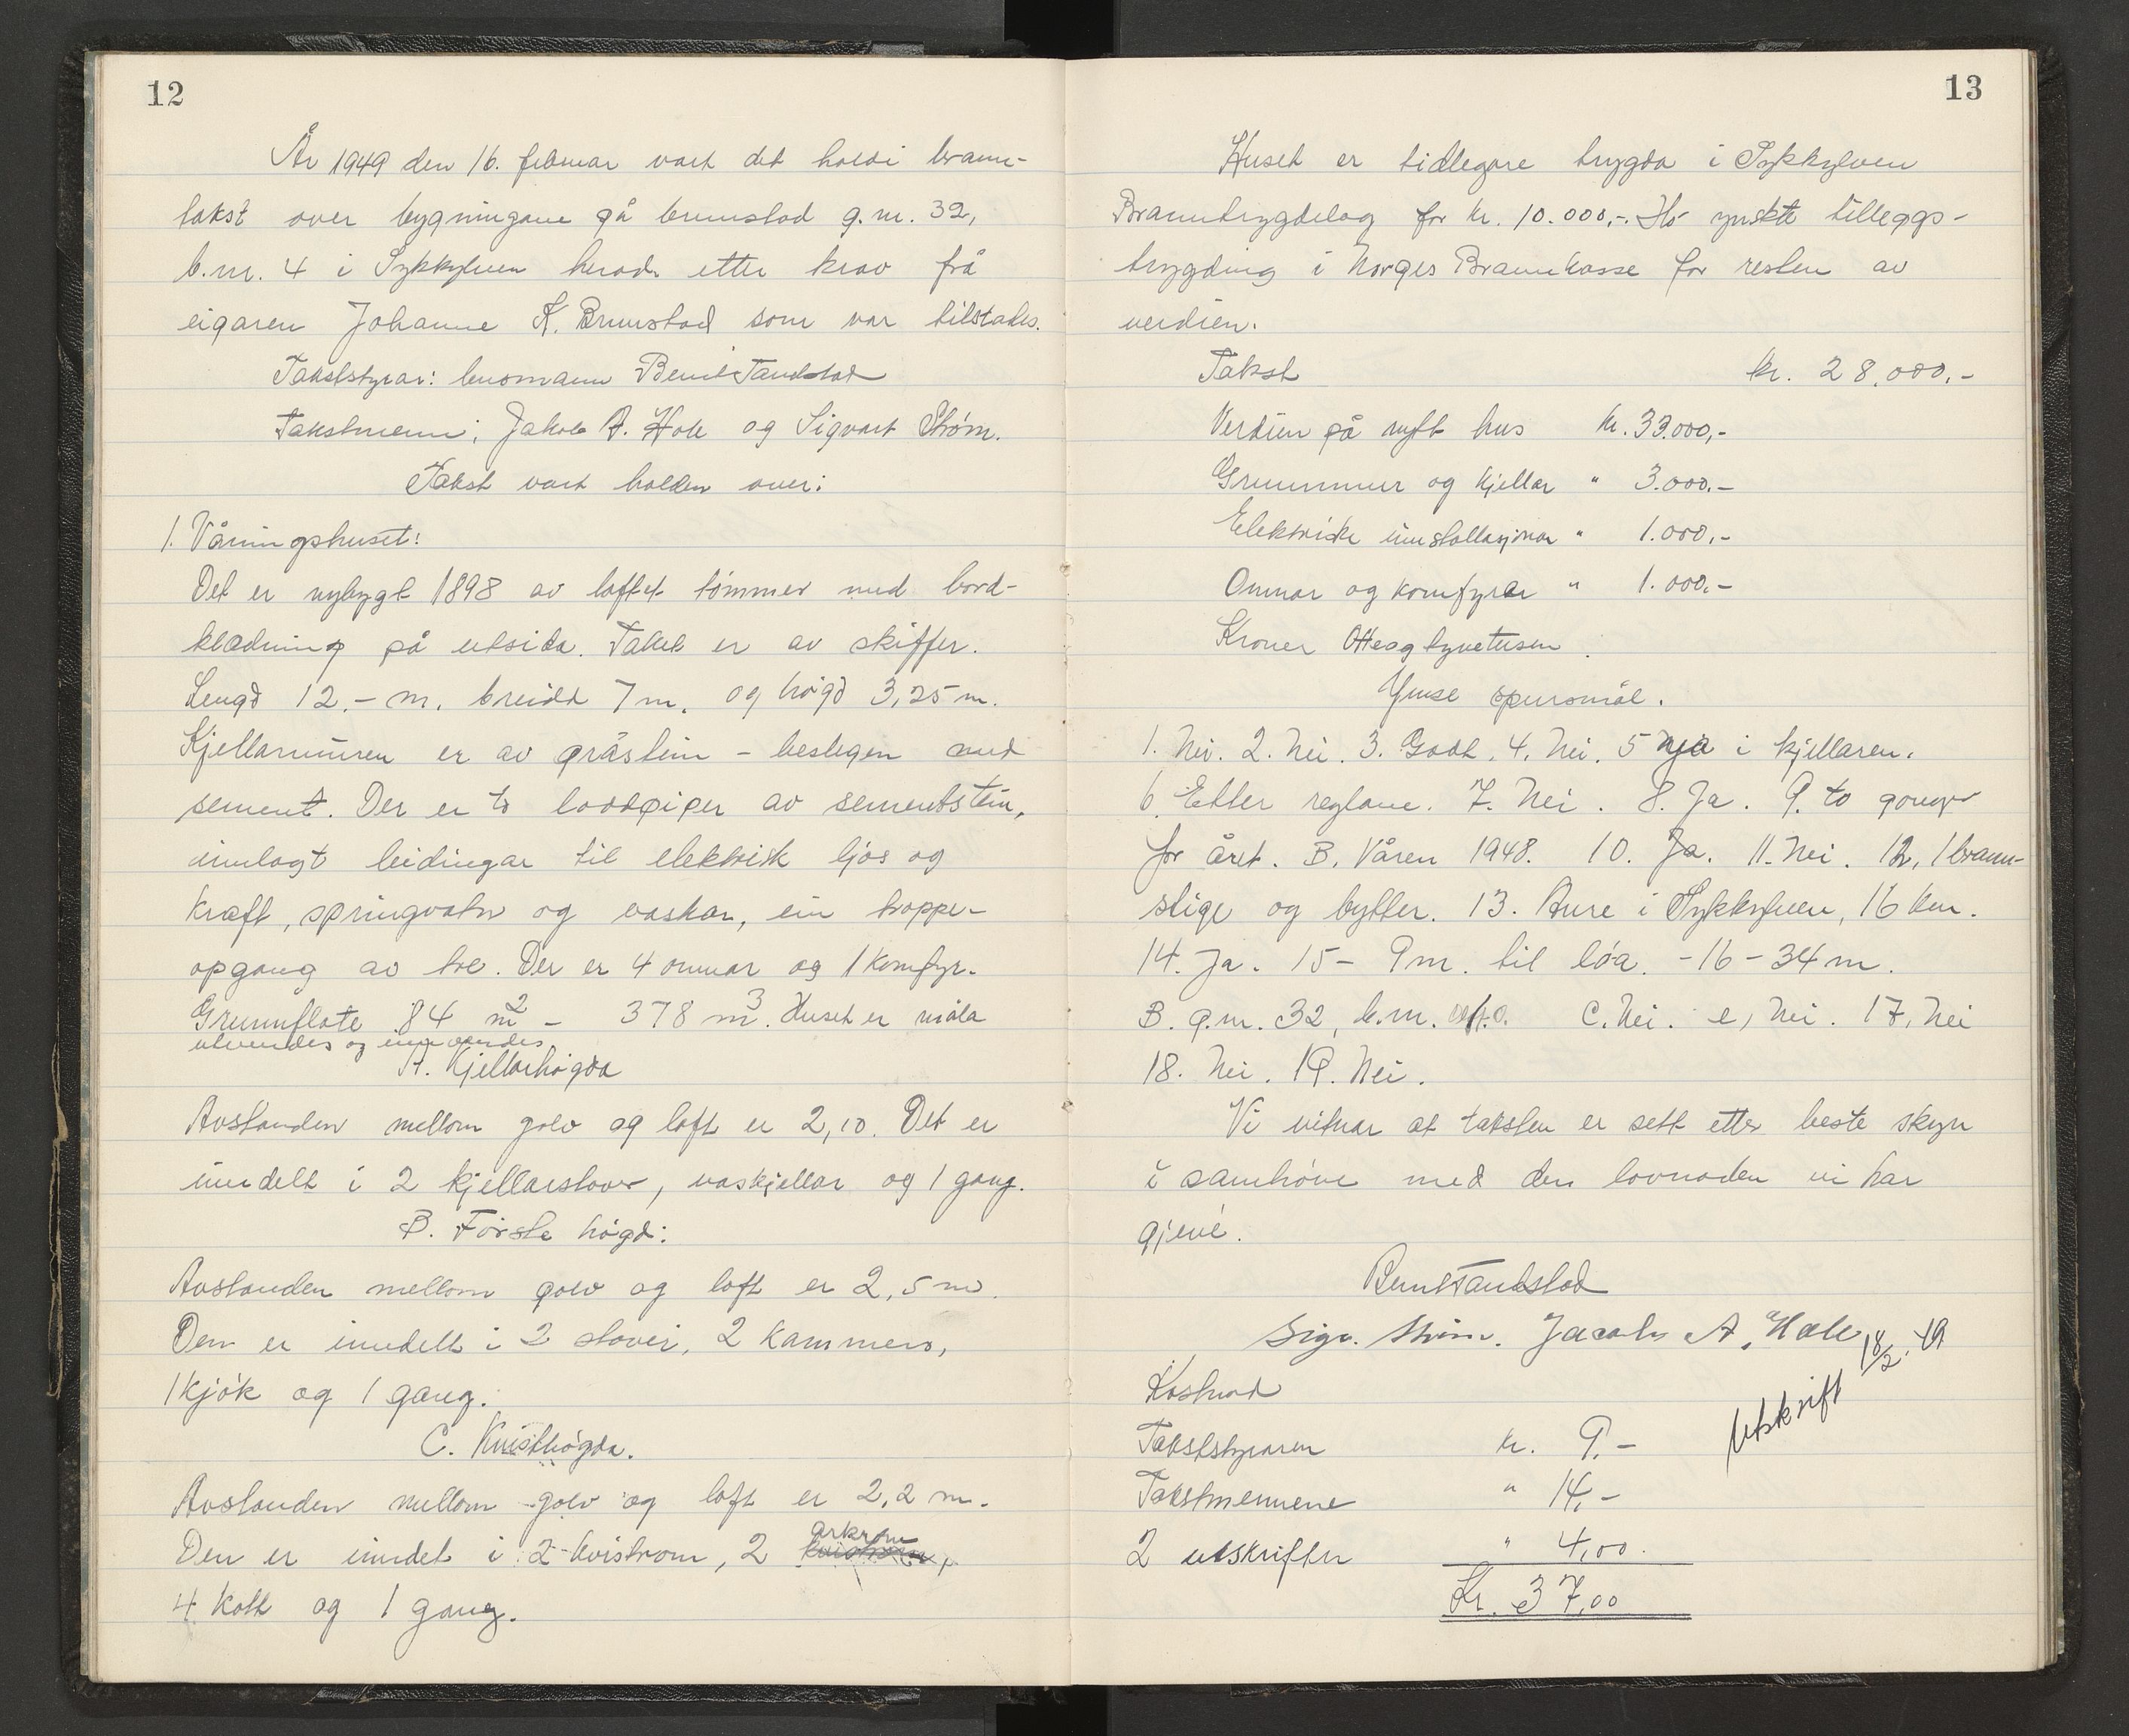 12
År 1949 den 16. februar vart det haldi brann-
takst over bygningane på brunstad g.nr. 32,
b.nr. 4 i Sykkylven herad etter krav frå
eigaren Johanne K. Brunstad som var tilstades.
Takststyrar: lensmann Bernt Tandstad
Takstmenn: Jakob A. Hole og Sigvart Strøm.
Takst vart halden over:
1. Våningshuset:
Det er nybygt 1898 av laftet tømmer med bord-
klædning på utsida. Taket er av skiffer.
Lengd 12.- m. breidd 7 m. og høgd 3,25 m.
Kjellarmuren er av gråstein - beslegen med
sement. Der er to loddpiper av sementstein,
innlagt leidingar til elektrisk ljos og
kraft, springvatn og vaskar, ein trappe-
opgang av tre. Der er 4 omnar og 1 komfyr.
Grunnflate 84 m² - 378 m³. Huset er måla
utvendes og innvendes
A. Kjellarhøgda
Avstanden mellom golv og loft er 2,10. Det er
inndelt i 2 kjellarstover, vaskjellar og 1 gang.
B. Første høgd:
Avstanden mellom golv og loft er 2,5 m.
Den er inndelt i 2 stover, 2 kammers,
1 kjøk og 1 gang.
C. Kvisthøgda.
Avstanden mellom golv og loft er 2,2 m.
arkrom
Den er inndelt i 2 kvistrom, 2
4 kott og 1 gang.
13
Huset er tidlegare trygda i Sykkylven
Branntrygdelag for kr. 10.000,-. Ho ynskte tilleggs-
trygding i Norges Brannkasse for resten av
verdien.
Takst kr. 28.000.-
Verdien på nytt hus kr. 33.000,-
Grunnmur og kjellar " 3.000.-
Elektriske innstallasjonar " 1.000.-
Omnar og komfyrar " 1.000.-
Kroner Otteogtyvetusen.
Ymse spursmål.
1. Nei. 2. Nei. 3. Godt. 4. Nei. 5 ja i kjellaren.
6. Etter reglane. 7. Nei. 8. Ja. 9. to gonger
for året. B. Våren 1948. 10. Ja. 11. Nei. 12. 1 brann-
stige og bytter. 13. Aure i Sykkylven, 16 km.
14. Ja. 15 - 9 m. til løa. - 16 - 34 m.
B. g.nr. 32, b.nr. C. Nei. e, Nei. 17. Nei
18. Nei. 19. Nei.
Vi vitnar at taksten er sett etter beste skyn
i samhøve med den lovnaden vi har
gjeve.
Bernt Tandstad
Sigv. Strøm. Jacob A. Hole
Utskrift 18/2.49
Kostnad
Takststyraren kr. 9.-
Takstmennene " 14,-
2 utskrifter " 4,00.
Kr. 37,00